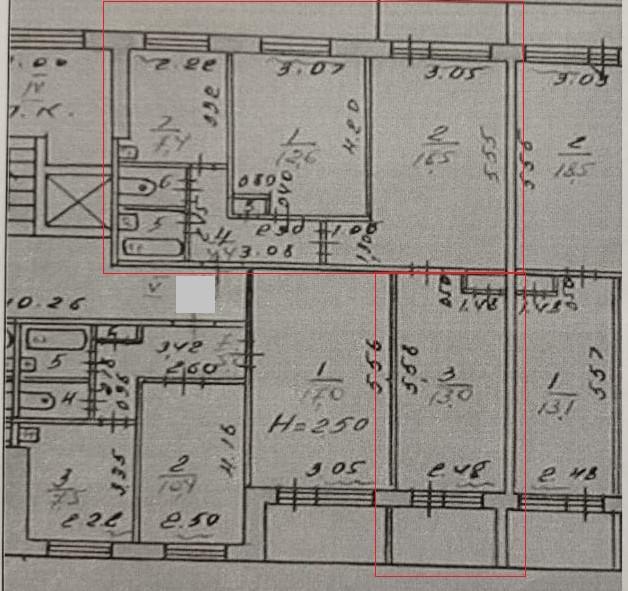 IV
Л.К.
2.22
3.07
3.05
3.05
3.32
7
7,4
1
12,6
4.20
2
18,5
5.55
5.50
2
18,5
6
5
080
040
4
3.08
1.00
1.30
V
10.26
5
5
3,42
2.60
4
0.96
3
7,5
3.35
2.22
2
10,4
4.16
2.50
1
17,0
H=250
5.56
3.05
5.58
3
13,0
050
1.48
1.48
050
2.48
1
13,1
5.57
2.48